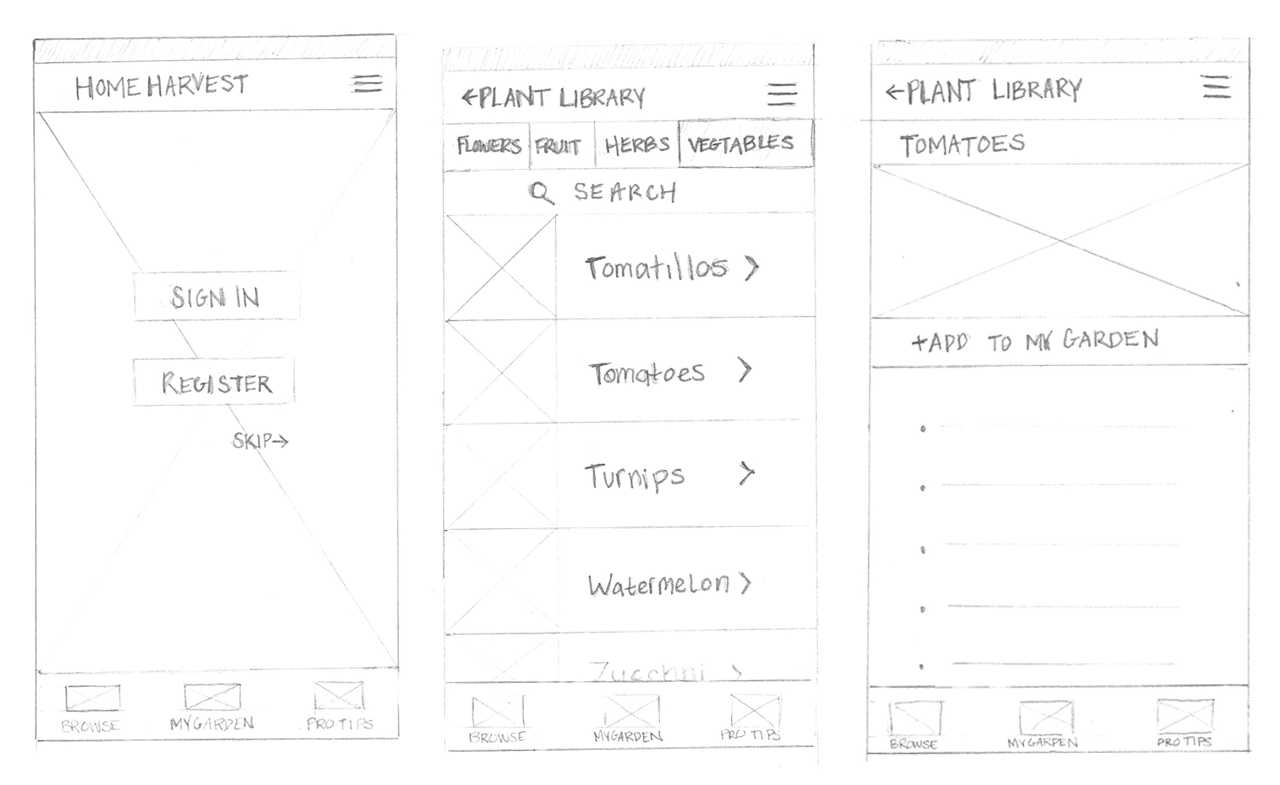 HOME HARVEST
SIGN IN
REGISTER
SKIP→
BROWSE MY GARDEN PRO TIPS
←PLANT LIBRARY
FLOWERS FRUIT HERBS VEGTABLES
SEARCH
Tomatillos >
Tomatoes >
Turnips >
Watermelon >
Zucchni >
BROWSE MY GARDEN PRO TIPS
←PLANT LIBRARY
TOMATOES
+ADD TO MY GARDEN
BROWSE MY GARDEN PRO TIPS